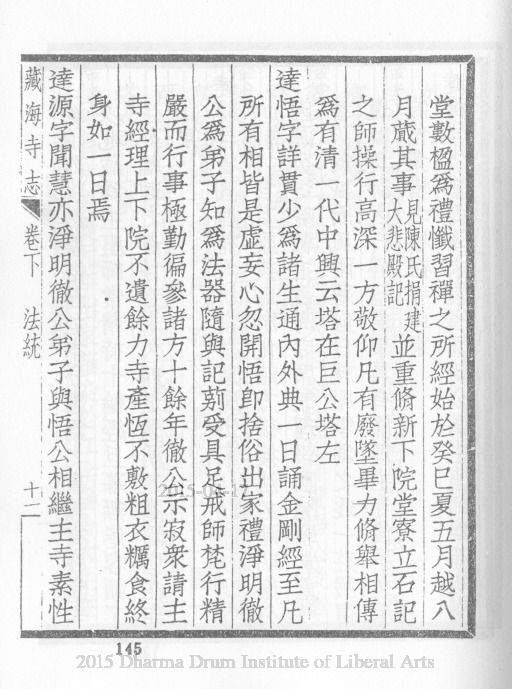 堂數楹爲禮懺習禪之所經始於癸巳夏五月越八
月蕆其事見陳氏捐建大悲殿記並重脩新下院堂寮立石記
之師操行高深一方敬仰凡有廢墜畢力脩舉相傳
爲有清一代中興云塔在巨公塔左
達悟字詳貫少爲諸生通內外典一日誦金剛經至凡
所有相皆是虛妄心忽開悟卽捨俗出家禮淨明徹
公爲弟子知爲法器隨與記莂受具足戒師梵行精
嚴而行事極勤徧參諸方十餘年徹公示寂衆請主
寺經理上下院不遺餘力寺產恆不敷粗衣糲食終
身如一日焉
達源字聞慧亦淨明徹公弟子與悟公相繼主寺素性
藏海寺志 卷下 法統 十二
145
2015-04-1
2015 Dharma Drum Institute of Liberal Arts